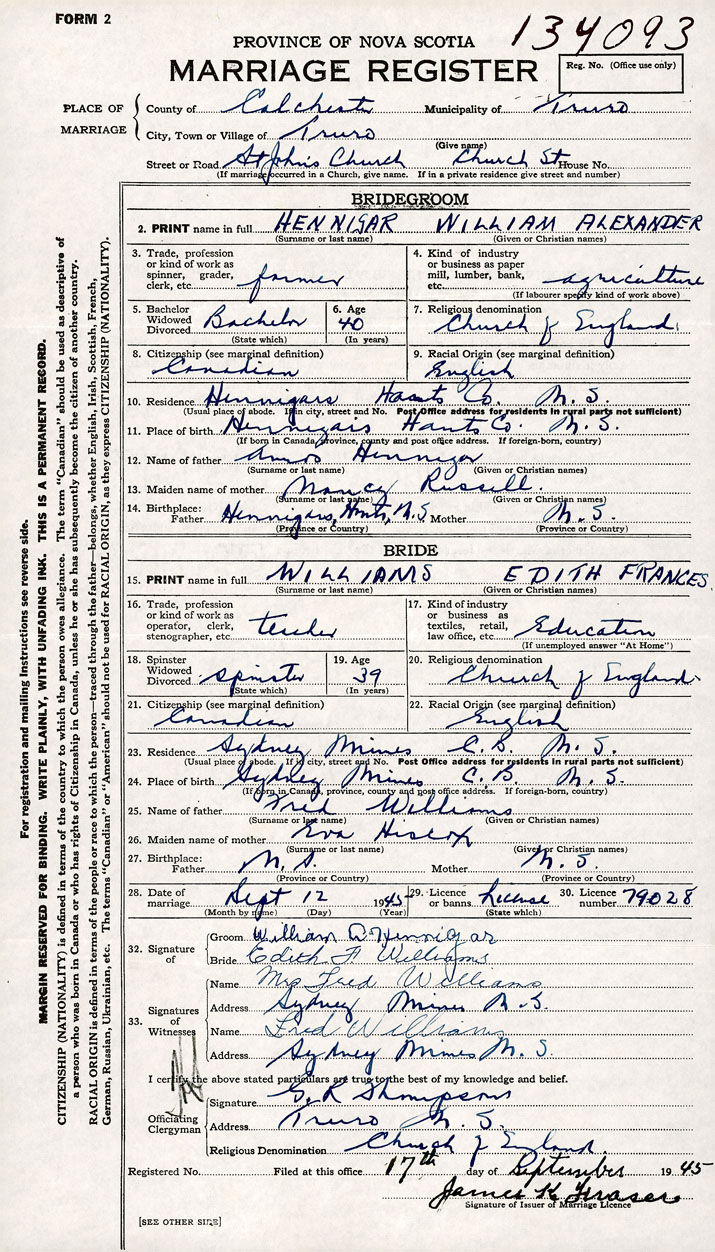 FORM 2
134093
PROVINCE OF NOVA SCOTIA
MARRIAGE REGISTER
Reg. No. (Office use only)
PLACE OF MARRIAGE
County of Colchester Municipality of Truro
City, Town or Village of Truro
(Give name)
Street or Road St Johns Church Church St. House No.
(If marriage occurred in a Church, give name. If in a private residence give street and number)
BRIDEGROOM
2. PRINT name in full HENNIGAR WILLIAM ALEXANDER
(Surname or last name) (Given or Christian names)
3. Trade, profession or kind of work as spinner, grader, clerk, etc. farmer
4. Kind of industry or business as paper mill, lumber, bank, etc. agriculture
(If labourer specify kind of work above)
5. Bachelor Widowed Divorced Bachelor
(State which)
6. Age 40
(In years)
7. Religious denomination Church of England
8. Citizenship (see marginal definition) Canadian
9. Racial Origin (see marginal definition) English
10. Residence Hennigars Hants Co. N. S.
(Usual place of abode. If in city, street and No. Post Office address for residents in rural parts not sufficient)
11. Place of birth Hennigars Hants Co. N. S.
(If born in Canada, province, county and post office address. If foreign-born, country)
12. Name of father Amos Hennigar
(Surname or last name) (Given or Christian names)
13. Maiden name of mother Nancy Russell.
(Surname or last name) (Given or Christian names)
14. Birthplace: Father Hennigars, Hants, N.S. Mother N. S.
(Province or Country) (Province or Country)
BRIDE
15. PRINT name in full WILLIAMS EDITH FRANCES
(Surname or last name) (Given or Christian names)
16. Trade, profession or kind of work as operator, clerk, stenographer, etc. teacher
17. Kind of industry or business as textiles, retail, law office, etc. Education
(If unemployed answer "At Home")
18. Spinster Widowed Divorced Spinster
(State which)
19. Age 39
(In years)
20. Religious denomination Church of England
21. Citizenship (see marginal definition) Canadian
22. Racial Origin (see marginal definition) English
23. Residence Sydney Mines C. B. N. S.
(Usual place of abode. If in city, street and No. Post Office address for residents in rural parts not sufficient)
24. Place of birth Sydney Mines C. B. N. S.
(If born in Canada, province, county and post office address. If foreign-born, country)
25. Name of father Fred Williams
(Surname or last name) (Given or Christian names)
26. Maiden name of mother Eva Hiscox
(Surname or last name) (Given or Christian names)
27. Birthplace: Father N. S. Mother N. S.
(Province or Country) (Province or Country)
28. Date of marriage Sept 12 1945
(Month by name) (Day) (Year)
29. Licence or banns License
(State which)
30. Licence number 79028
32. Signature of
Groom William A Hennigar
Bride Edith F Williams
33. Signatures of Witnesses
Name Mrs Fred Williams
Address Sydney Mines N. S.
Name Fred Williams
Address Sydney Mines N. S.
I certify the above stated particulars are true to the best of my knowledge and belief.
Officiating Clergyman
Signature G. R Thompson
Address Truro N. S.
Religious Denomination Church of England
Registered No. Filed at this office 17th day of September 1945
James K Fraser
Signature of Issuer of Marriage Licence
[SEE OTHER SIDE]
For registration and mailing instructions see reverse side.
MARGIN RESERVED FOR BINDING. WRITE PLAINLY, WITH UNFADING INK. THIS IS A PERMANENT RECORD.
CITIZENSHIP (NATIONALITY) is defined in terms of the country to which the person owes allegiance. The term "Canadian" should be used as descriptive of
a person who was born in Canada or who has rights of Citizenship in Canada, unless he or she has subsequently become the citizen of another country.
RACIAL ORIGIN is defined in terms of the people or race to which the person—traced through the father—belongs, whether English, Irish, Scottish, French,
German, Russian, Ukrainian, etc. The terms "Canadian" or "American" should not be used for RACIAL ORIGIN, as they express CITIZENSHIP (NATIONALITY).